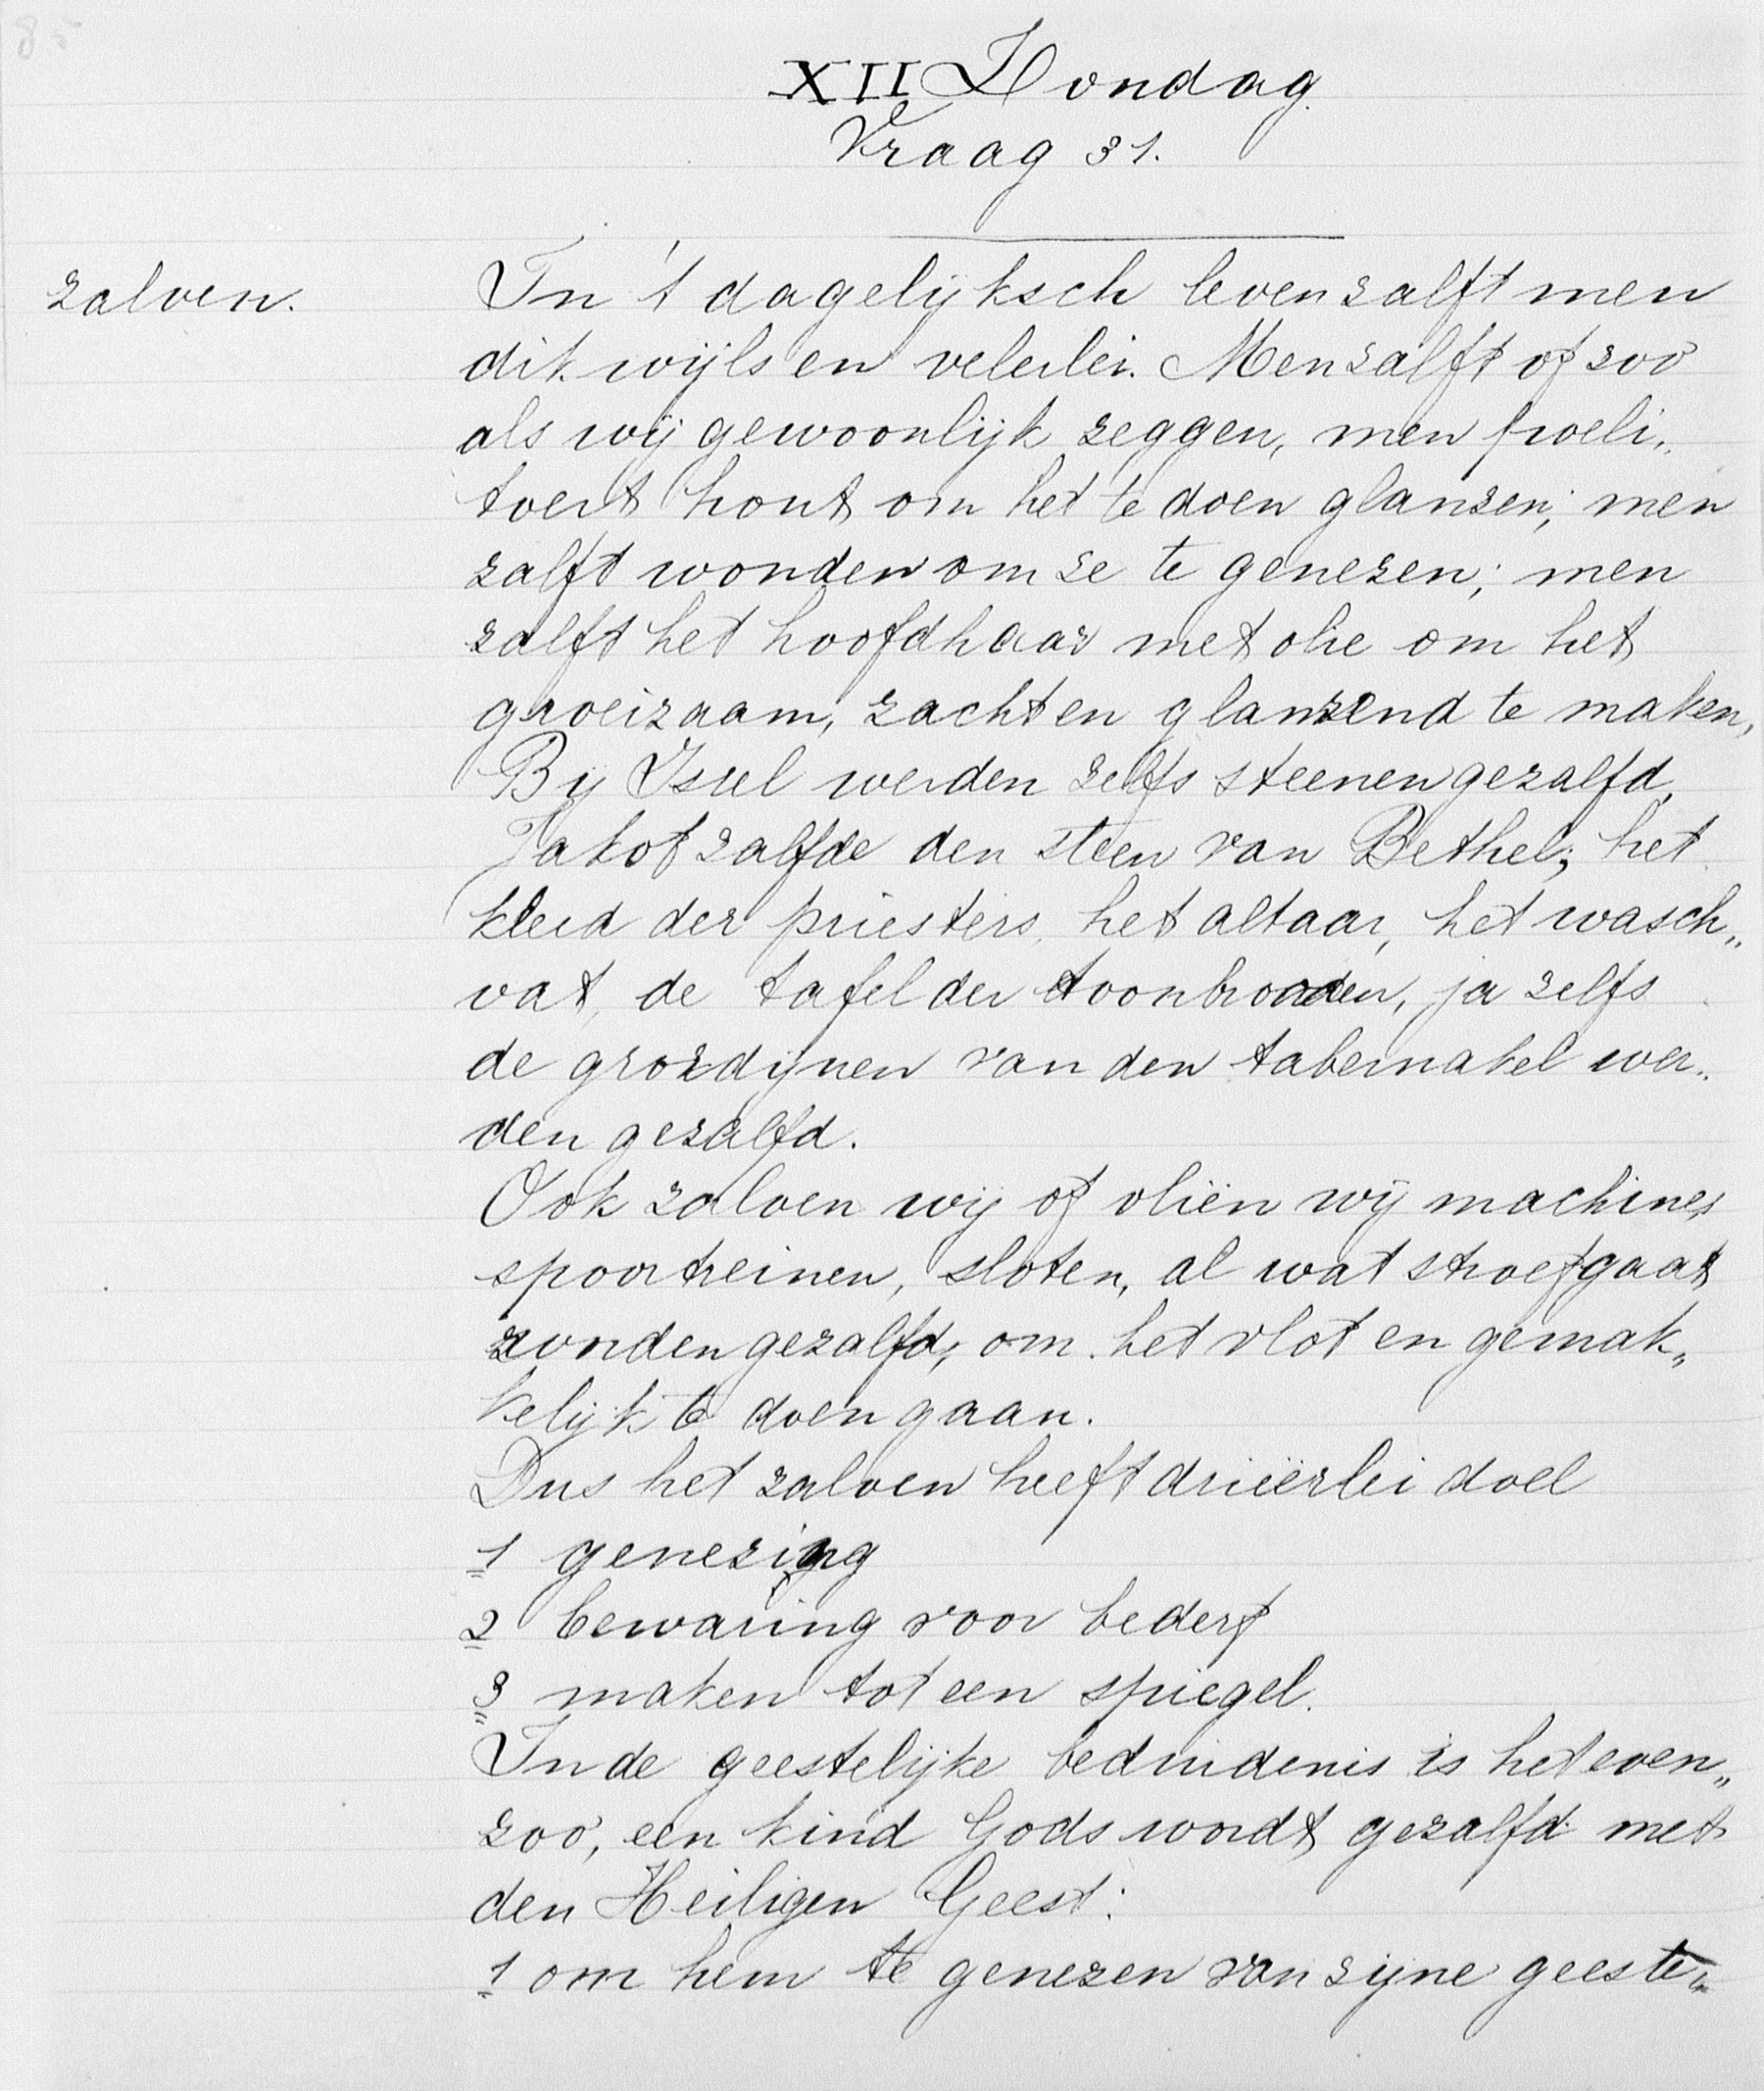 85
XII Zondag.
Vraag 31.
zalven.
In 't dagelijksch leven zalft men
dikwijls en velerlei. Men zalft of zoo
als wij gewoonlijk zeggen, men poli„
toert hout om het te doen glanzen; men
zalft wonden om ze te genezen; men
zalft het hoofdhaar met olie om het
groeizaam, zacht en glanzend te maken,
Bij Isrel werden zelfs steenen gezalfd,
Jakob zalfde den steen van Bethel; het
kleed der priesters, het altaar, het wasch„
vat, de tafel der toonbrooden, ja zelfs
de grozdijnen van den tabernakel wer„
den gezalfd.
Ook zalven wij of oliën wij machines
spoortreinen, sloten, al wat stroef gaat
worden gezalfd, om het vlot en gemak„
kelijk te doen gaan.
Dus het zalven heeft drieërlei doel
1 genezing
2 bewaring voor bederf
3 maken tot een spiegel.
In de geestelijke beduidenis is het even„
zoo, een kind Gods wordt gezalfd met
den Heiligen Geest:
1 om hem te genezen van zijne geeste„